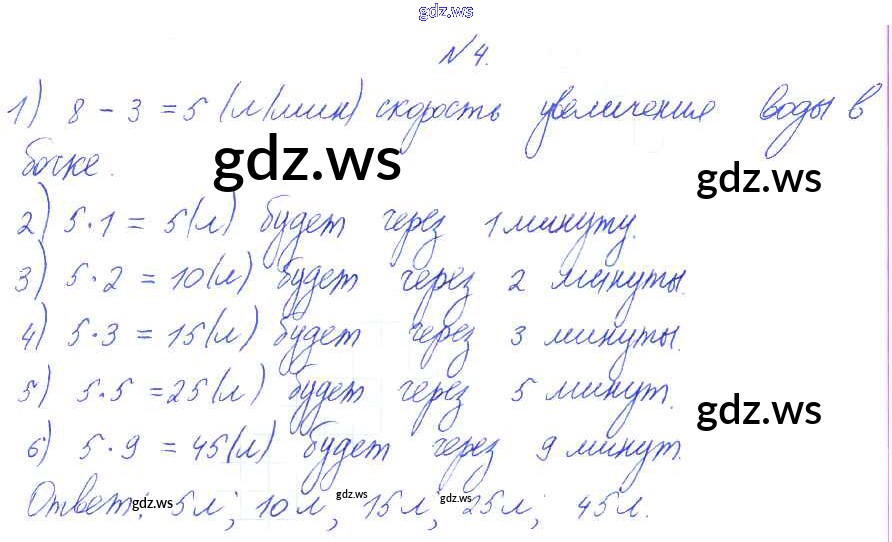 gdz.ws
№4.
1) 8 - 3 = 5 (л/мин) скорость увеличения воды в
бочке.
gdz.ws
gdz.ws
2) 5·1 = 5(л) будет через 1 минуту.
3) 5·2 = 10(л) будет через 2 минуты.
4) 5·3 = 15(л) будет через 3 минуты.
5) 5·5 = 25(л) будет через 5 минут.
gdz.ws
6) 5·9 = 45(л) будет через 9 минут.
Ответ: 5л; 10л; 15л; 25л; 45л.
gdz.ws gdz.ws gdz.ws